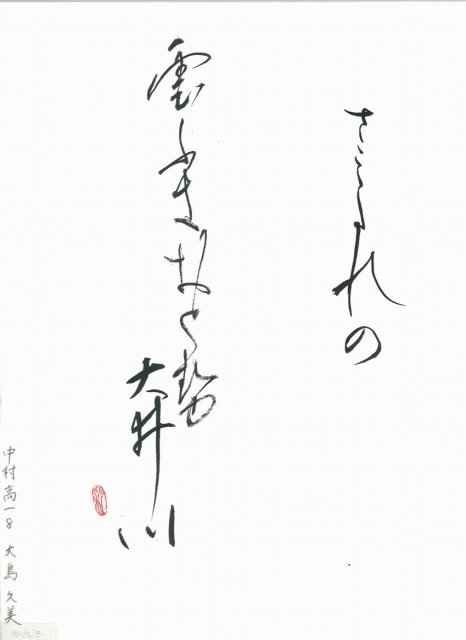 さみたれの
雲ふきおと勢
大井川
中村高一8 大島久美